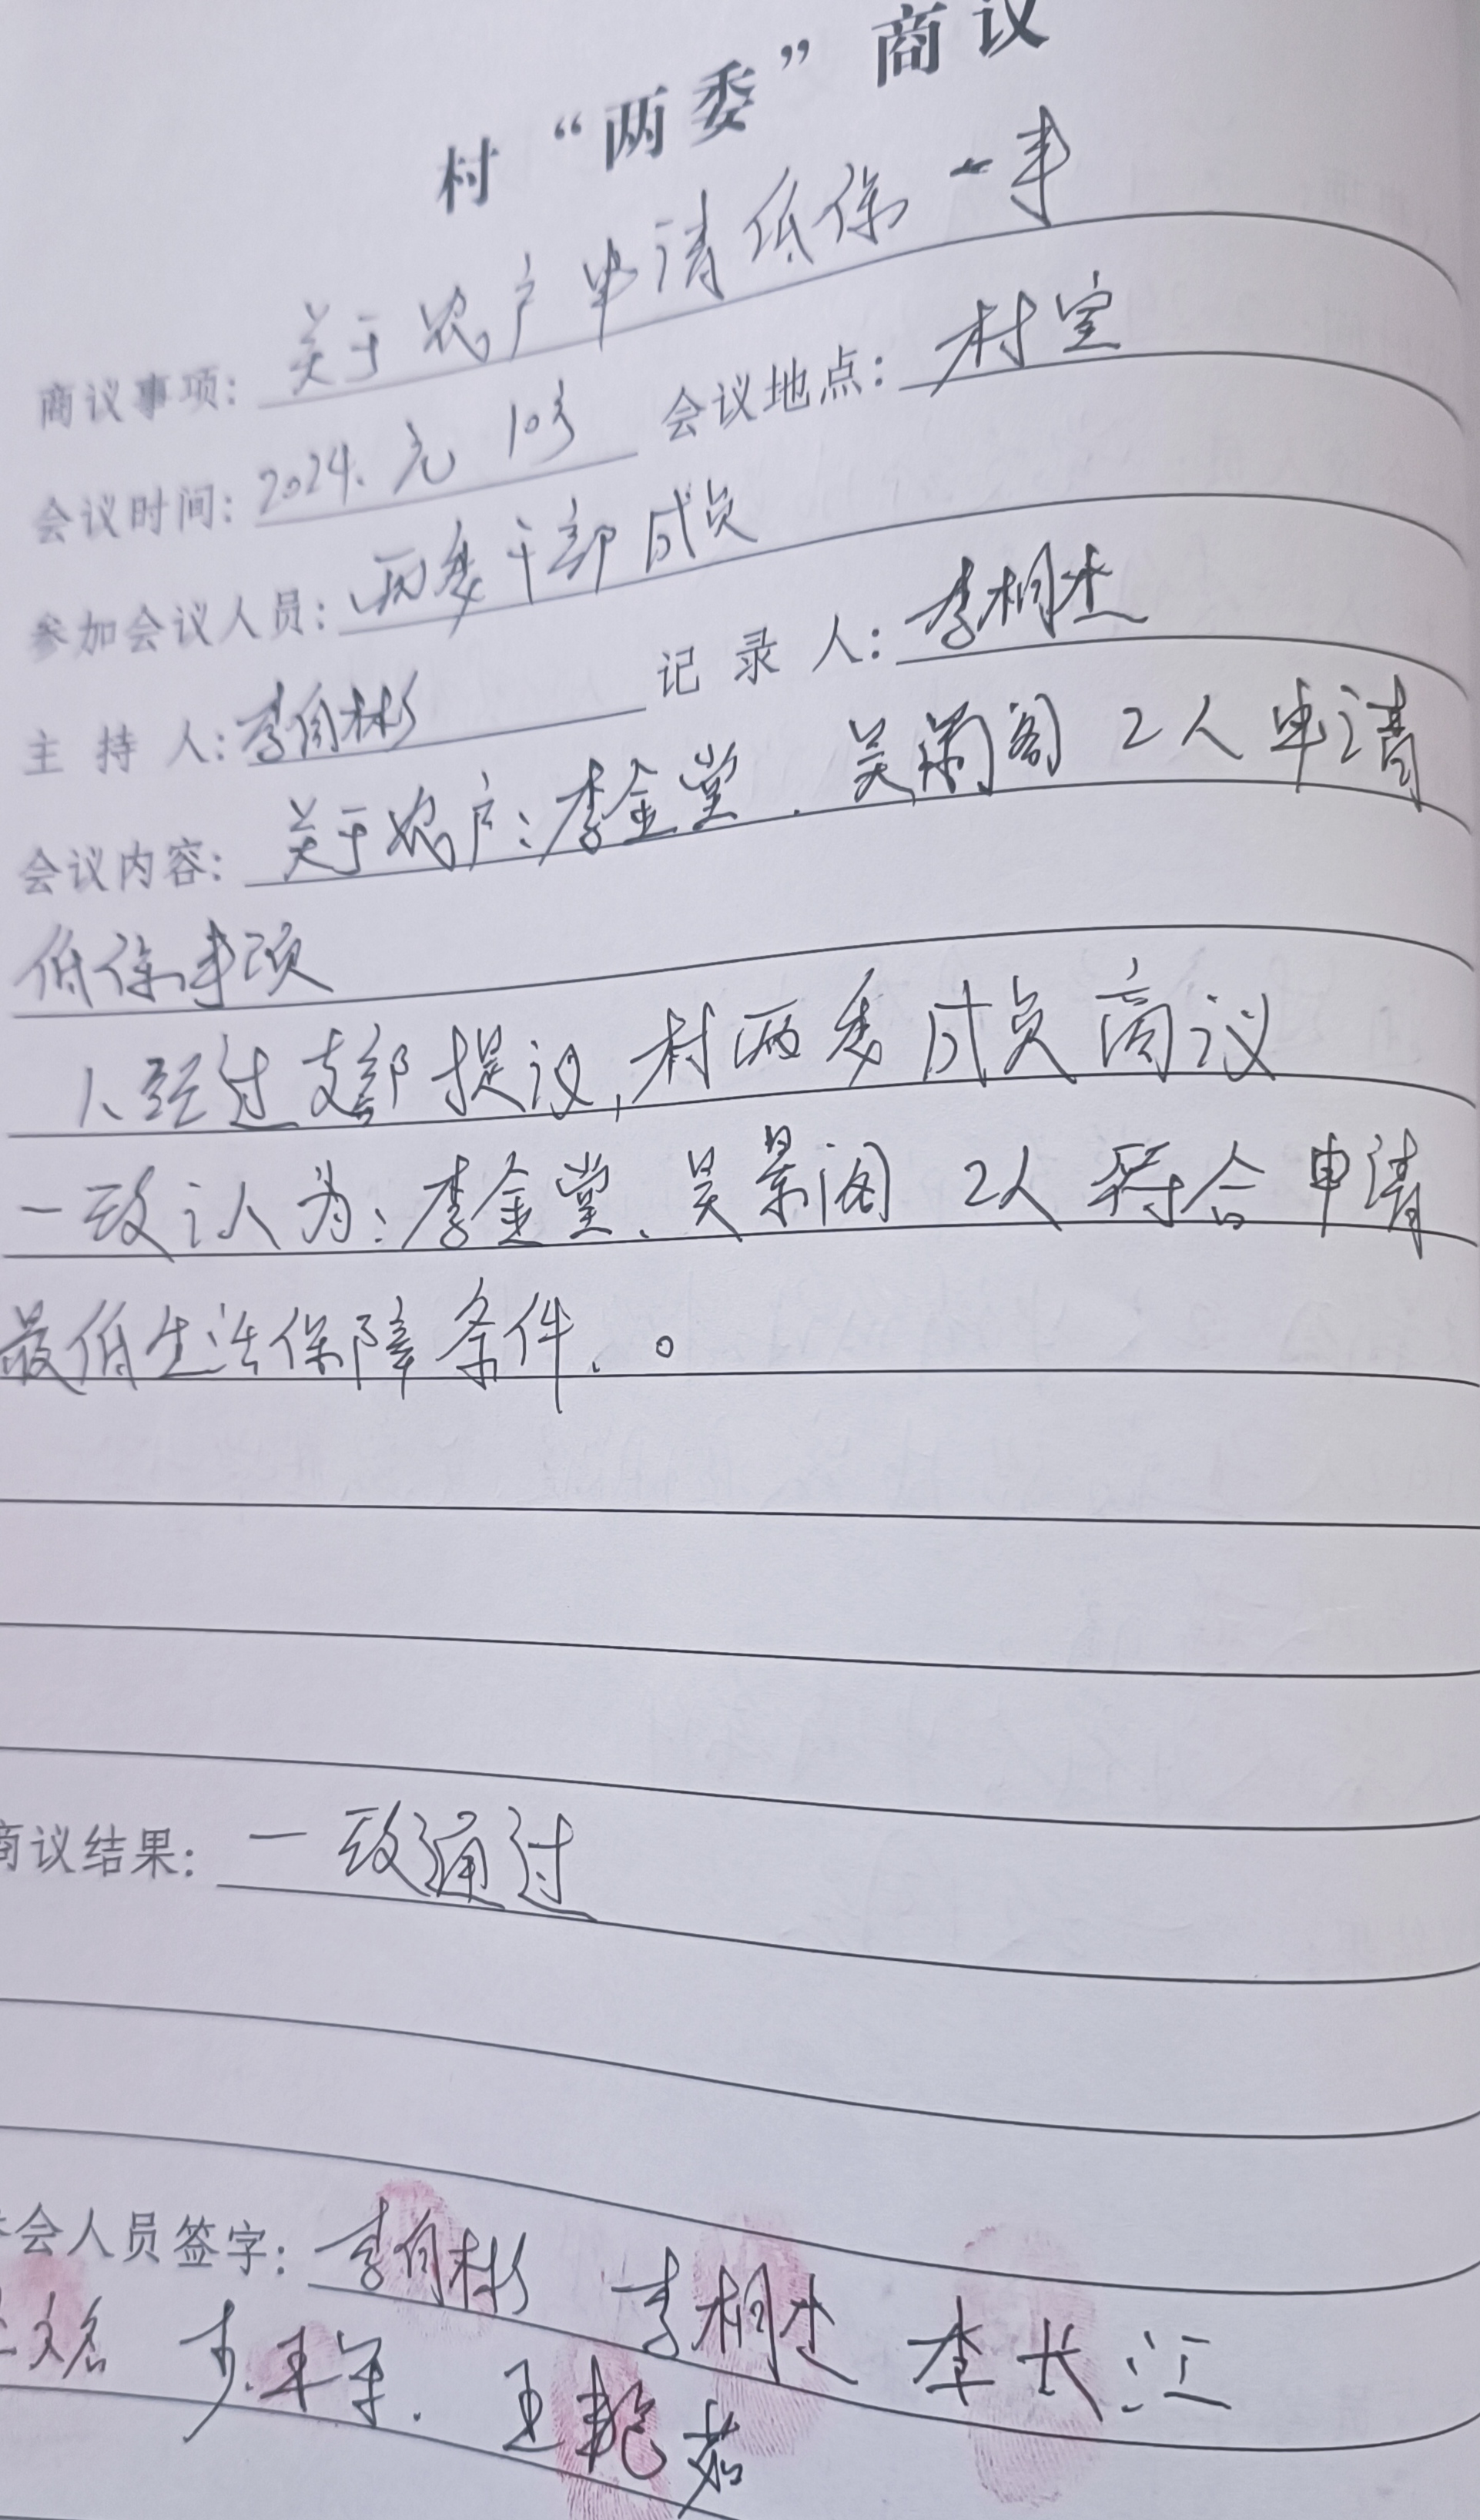 村“两委”商议
商议事项: 关于农户申请低保一事
会议时间: 2024. 元 10号 会议地点: 村室
参加会议人员: 两委干部成员
主持人: 李自彬 记录人: 李桐杰
会议内容: 关于农户: 李金堂、吴景阁 2人申请
低保事项
1、经过支部提议, 村两委成员商议
一致认为: 李金堂、吴景阁 2人符合申请
最低生活保障条件、。
商议结果: 一致通过
会人员签字: 李自彬 李桐杰 李长江
王艳茹